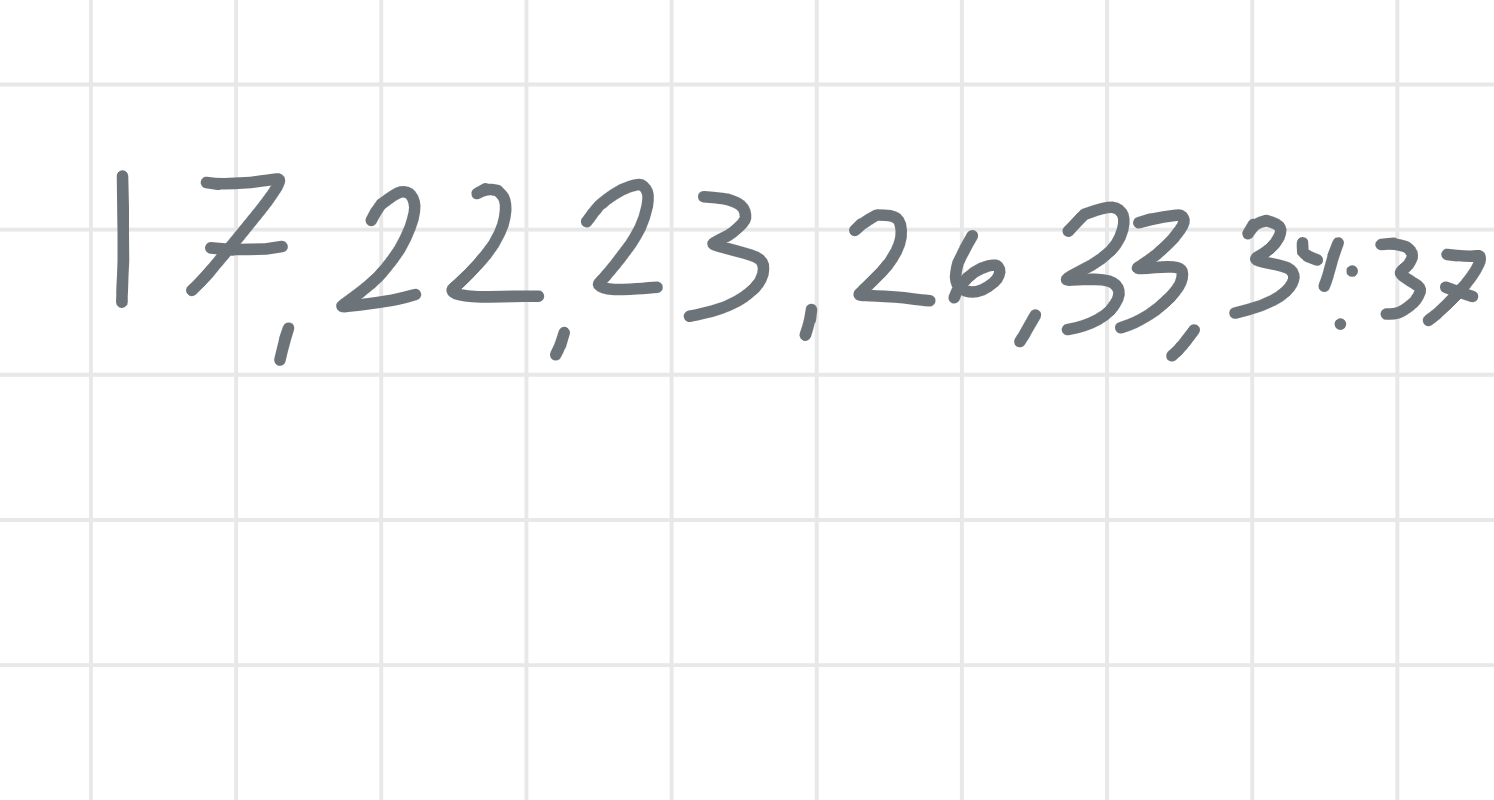 17, 22, 23, 26, 33, 34; 37